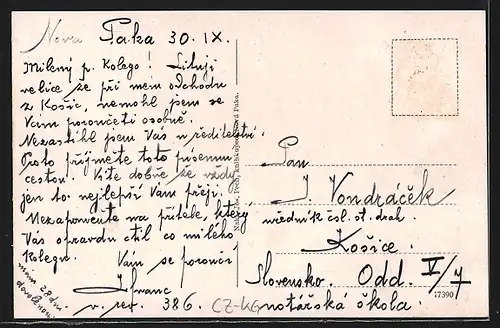 Nova Paka 30. IX.
Milený p. Kolego! Lituji
velice že při mém odchodu
z Košic, nemohl jsem se
Vám poroučeti osobně.
Nezastihl jsem Vás v ředitelství.
Proto přijměte toto písemnou
cestou. Víte dobře že vždy
jen to nejlepší Vám přeji.
Nezapomeňte na přítele, který
Vás opravdu ctil co milého
kolegu.
Vám se poroučí
v. rev. 386.
mám 28 dní
dovolenou
Pan
J. Vondráček
úředník čsl. st. drah
Košice.
Slovensko. Odd. V/7
notářská škola.
CZ-KG
17390